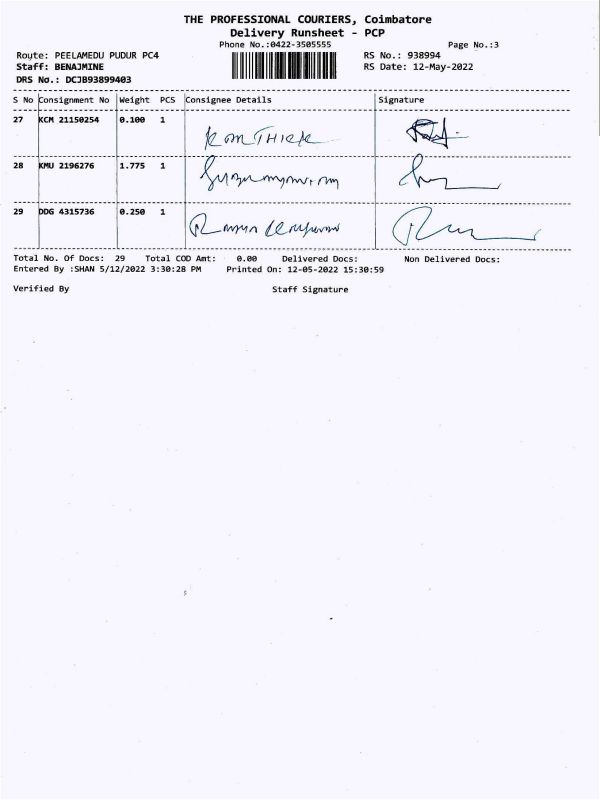 THE PROFESSIONAL COURIERS, Coimbatore
Delivery Runsheet - PCP
Phone No.:0422-3505555 Page No.:3
Route: PEELAMEDU PUDUR PC4 RS No.: 938994
Staff: BENAJMINE RS Date: 12-May-2022
DRS No.: DCJB93899403
S No Consignment No Weight PCS Consignee Details Signature
27 KCM 21150254 0.100 1
KARTHICK
28 KMU 2196276 1.775 1
29 DDG 4315736 0.250 1
Total No. Of Docs: 29 Total COD Amt: 0.00 Delivered Docs: Non Delivered Docs:
Entered By :SHAN 5/12/2022 3:30:28 PM Printed On: 12-05-2022 15:30:59
Verified By Staff Signature